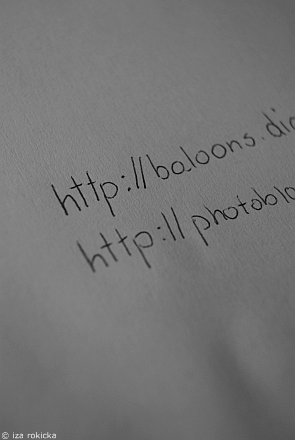 http://baloons.dia
http://photoblo
© iza rokicka